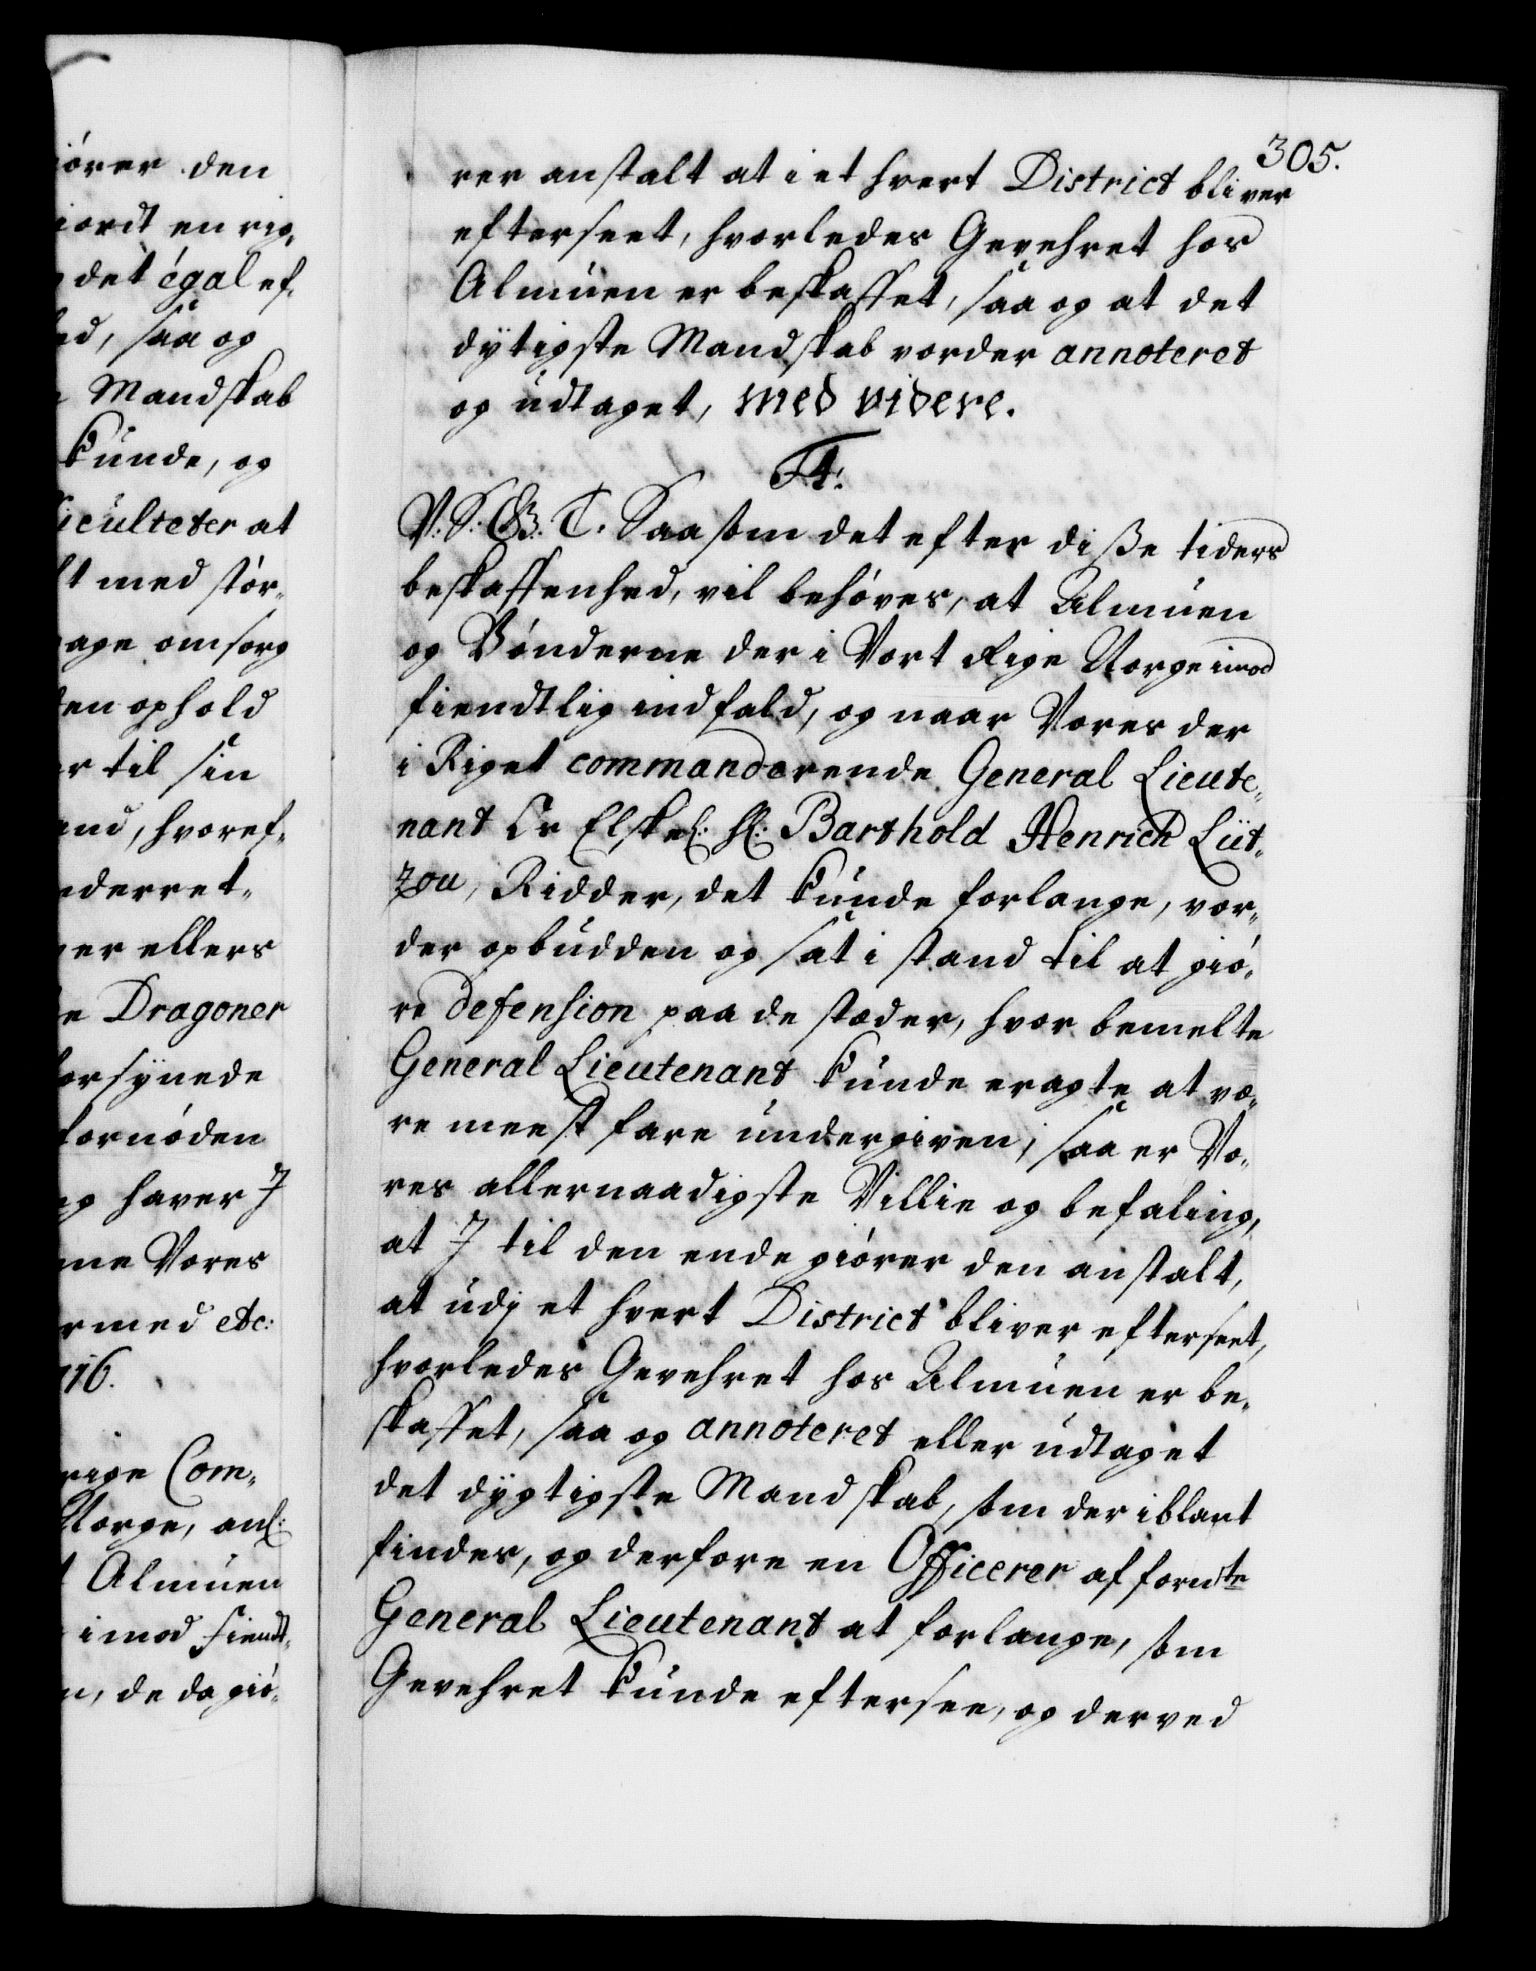 iører den
iordt en rig,
det égal ef,
ed, saa og
Mandskab
kunde, og
iculteter at
lt med stør,
age omsorg
den ophold
r til sin
and, hvoref,
nderret,
er ellers
e Dragoner
forsynede
fornøden
og haver J
ne Vores
rmed etc:
716.
rige Com,
Norge, anl:
Almuen
imod fiendt,
n, de da giø,
305.
rer anstalt at i et hvert District bliver
efterseet, hvorledes Gevehret hos
Almuen er beskaffet, saa og at det
dytigste Mandskab vorder annoteret
og udtaget, med videre.
F4:
V: S: G: T. Saasom det efter disse tiders
beskaffenhed, vil behøves, at Almuen
og Bønderne der i Vort Rige Norge imod
fiendtlig indfald, og naar Vores der
i Riget commanderende General Lieute,
nant Os Elskel: Hl: Barthold Henrich Lüt,
zou, Ridder, det kunde forlange, vor,
der opbudden og sat i stand til at giø,
re defension paa de stæder, hvor bemelte
General Lieutenant kunde eragte at væ,
re meest fare undergiven; saa er Vo,
res allernaadigste Villie og befaling,
at J til den ende giører den anstalt,
at udj et hvert District bliver efterseet,
hvorledes Gevehret hos Almuen er be,
skaffet, saa og annoteret eller udtaget
det dygtigste Mandskab, som der iblant
findes, og derfore en Officerer af fornte
General Lieutenant at forlange, som
Gevehret kunde eftersee, og derved